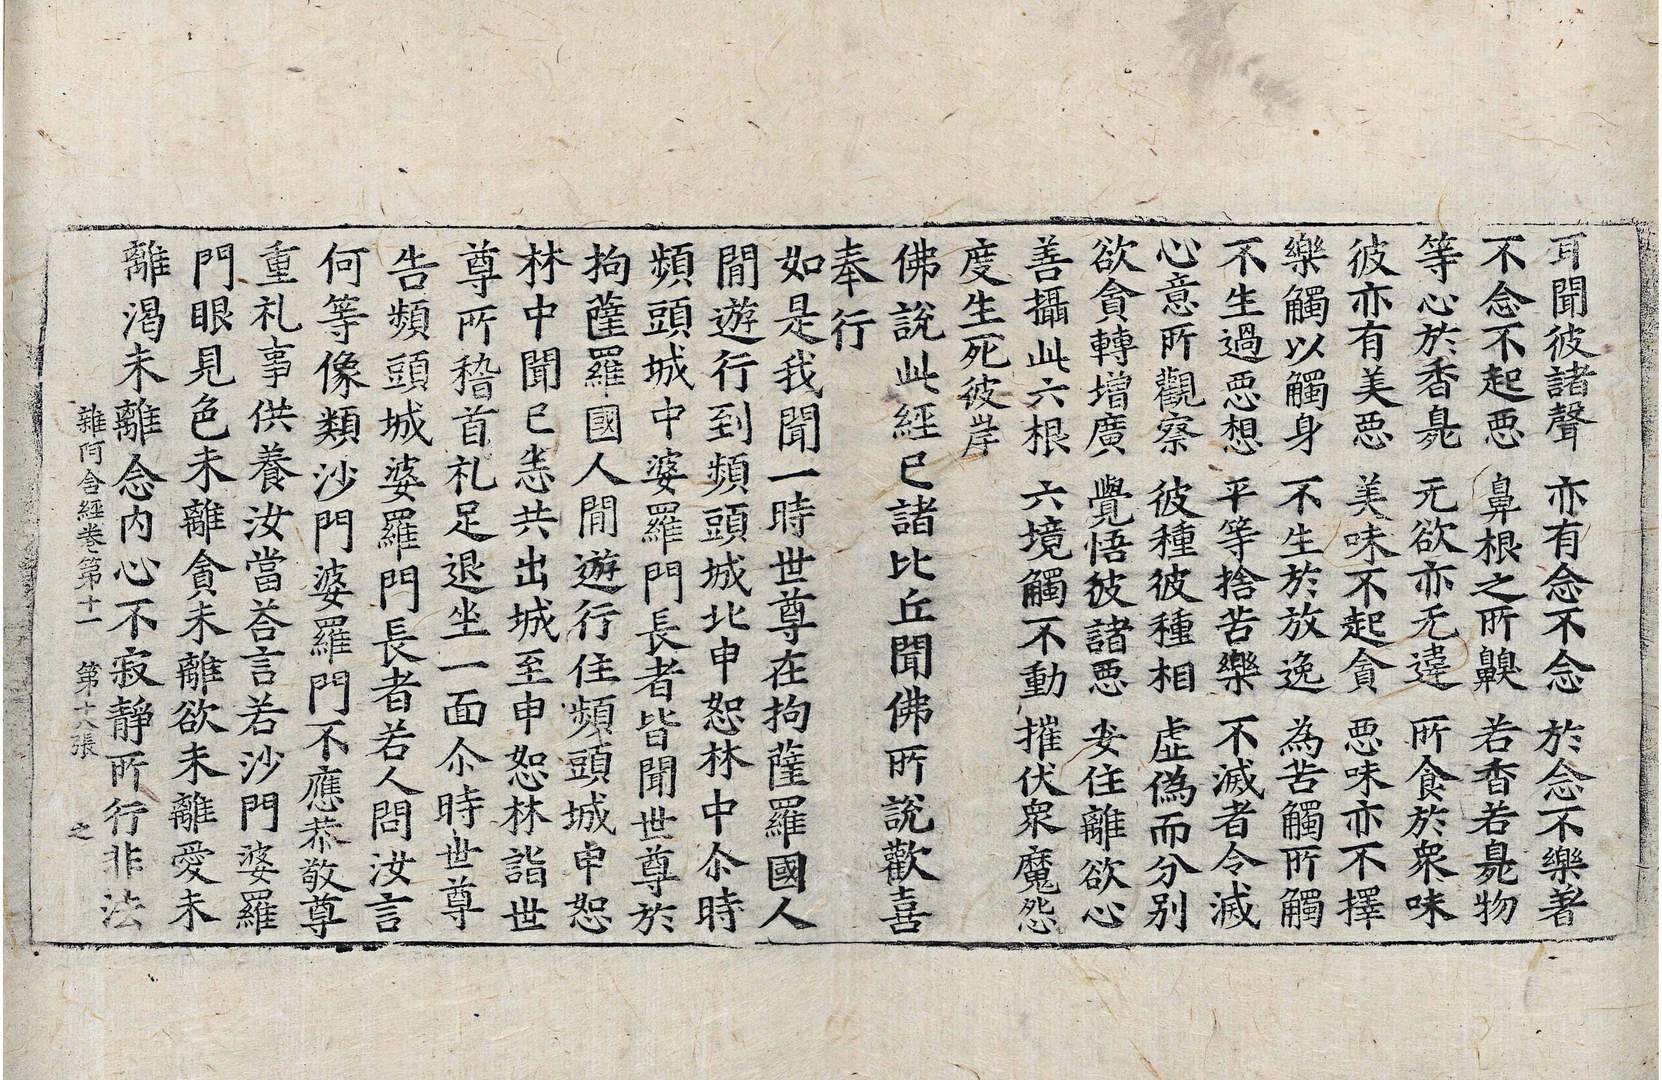 耳聞彼諸聲　亦有念不念　於念不樂著
不念不起惡　鼻根之所䶩　若香若臰物
等心於香臰　无欲亦无違　所食於衆味
彼亦有美惡　美味不起貪　惡味亦不擇
樂觸以觸身　不生於放逸　為苦觸所觸
不生過惡想　平等捨苦樂　不滅者令滅
心意所觀察　彼種彼種相　虛偽而分別
欲貪轉增廣　覺悟彼諸惡　安住離欲心
善攝此六根　六境觸不動　摧伏衆魔怨
度生死彼岸
佛說此經已諸比丘聞佛所說歡喜
奉行
如是我聞一時世尊在拘薩羅國人
閒遊行到頻頭城北申恕林中尒時
頻頭城中婆羅門長者皆聞世尊於
拘薩羅國人閒遊行住頻頭城申恕
林中聞已悉共出城至申恕林詣世
尊所稽首礼足退坐一面尒時世尊
告頻頭城婆羅門長者若人問汝言
何等像類沙門婆羅門不應恭敬尊
重礼事供養汝當荅言若沙門婆羅
門眼見色未離貪未離欲未離愛未
離渴未離念內心不寂靜所行非法
雜阿含經卷第十一　第十八張　之